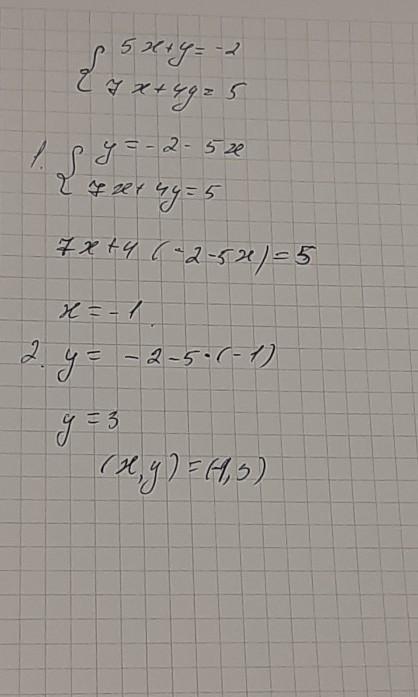 { 5x+y=-2
7x+4y=5
1. { y=-2-5x
7x+4y=5
7x+4(-2-5x)=5
x=-1.
2. y= -2-5·(-1)
y=3
(x,y)=(-1,3)